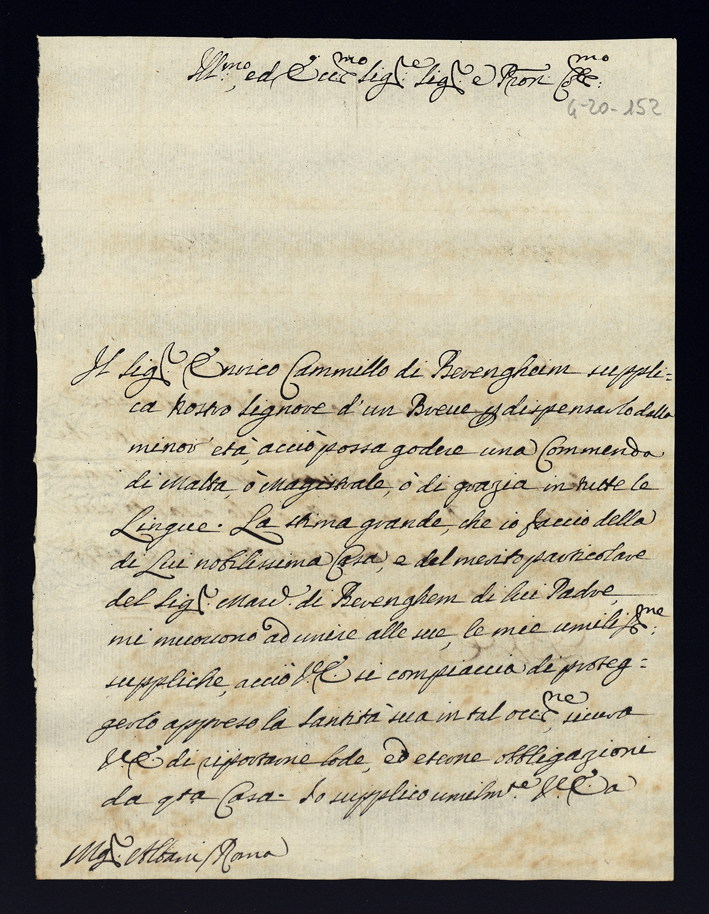 Ill.mo, ed Ecc.mo Sig.e Sig.e e Pron Col.mo
4-20-152
Il Sig.r Enrico Cammillo di Bevengheim suppli=
ca Nostro Signore d'un Breve p dispensarlo dalla
minor età, acciò possa godere una Commenda
di Malta, ò Magistrale, ò di grazia in tutte le
Lingue. La stima grande, che io faccio della
di Lui nobilissima Casa, e del merito particolare
del Sig.r di Bevenghem di lui Padre,
mi muovono ad unire alle sue, le mie umiliss.me
suppliche, acciò V.E. si compiaccia di proteg=
gerlo appreso la Santità sua in tal occ.ne, sicura
V.E. di riportarne lode, ed eterne obbligazioni
da qta Casa. Io supplico umilm.te V.E. a
Mg.r Albani Roma